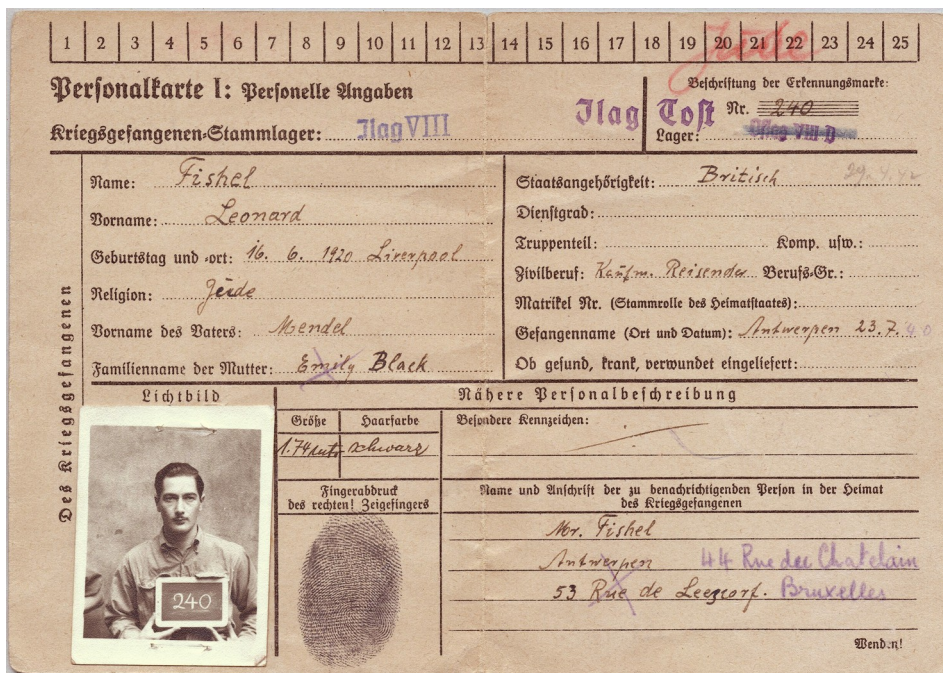 1 2 3 4 5 6 7 8 9 10 11 12 13 14 15 16 17 18 19 20 21 22 23 24 25
Jude
Personalkarte I: Personelle Angaben
Beschriftung der Erkennungsmarke:
Ilag Tost
Nr. 240
Kriegsgefangenen-Stammlager: Ilag VIII
Lager: Oflag VIII D
Des Kriegsgefangenen
Name: Fishel
Vorname: Leonard
Geburtstag und -ort: 16. 6. 1920 Liverpool
Religion: Jude
Vorname des Vaters: Mendel
Familienname der Mutter: Emily Black
Staatsangehörigkeit: Britisch 29.4.42
Dienstgrad:
Truppenteil: Komp. usw.:
Zivilberuf: Kaufm. Reisender Berufs-Gr.:
Matrikel Nr. (Stammrolle des Heimatstaates):
Gefangenname (Ort und Datum): Antwerpen 23.7.40
Ob gesund, krank, verwundet eingeliefert:
Lichtbild
240
Nähere Personalbeschreibung
Größe Haarfarbe Besondere Kennzeichen:
1.74 schwarz
Fingerabdruck
des rechten! Zeigefingers
Name und Anschrift der zu benachrichtigenden Person in der Heimat
des Kriegsgefangenen
Mr. Fishel
Antwerpen 44 Rue du Chatelain
53 Rue de Bruxelles
Wenden!